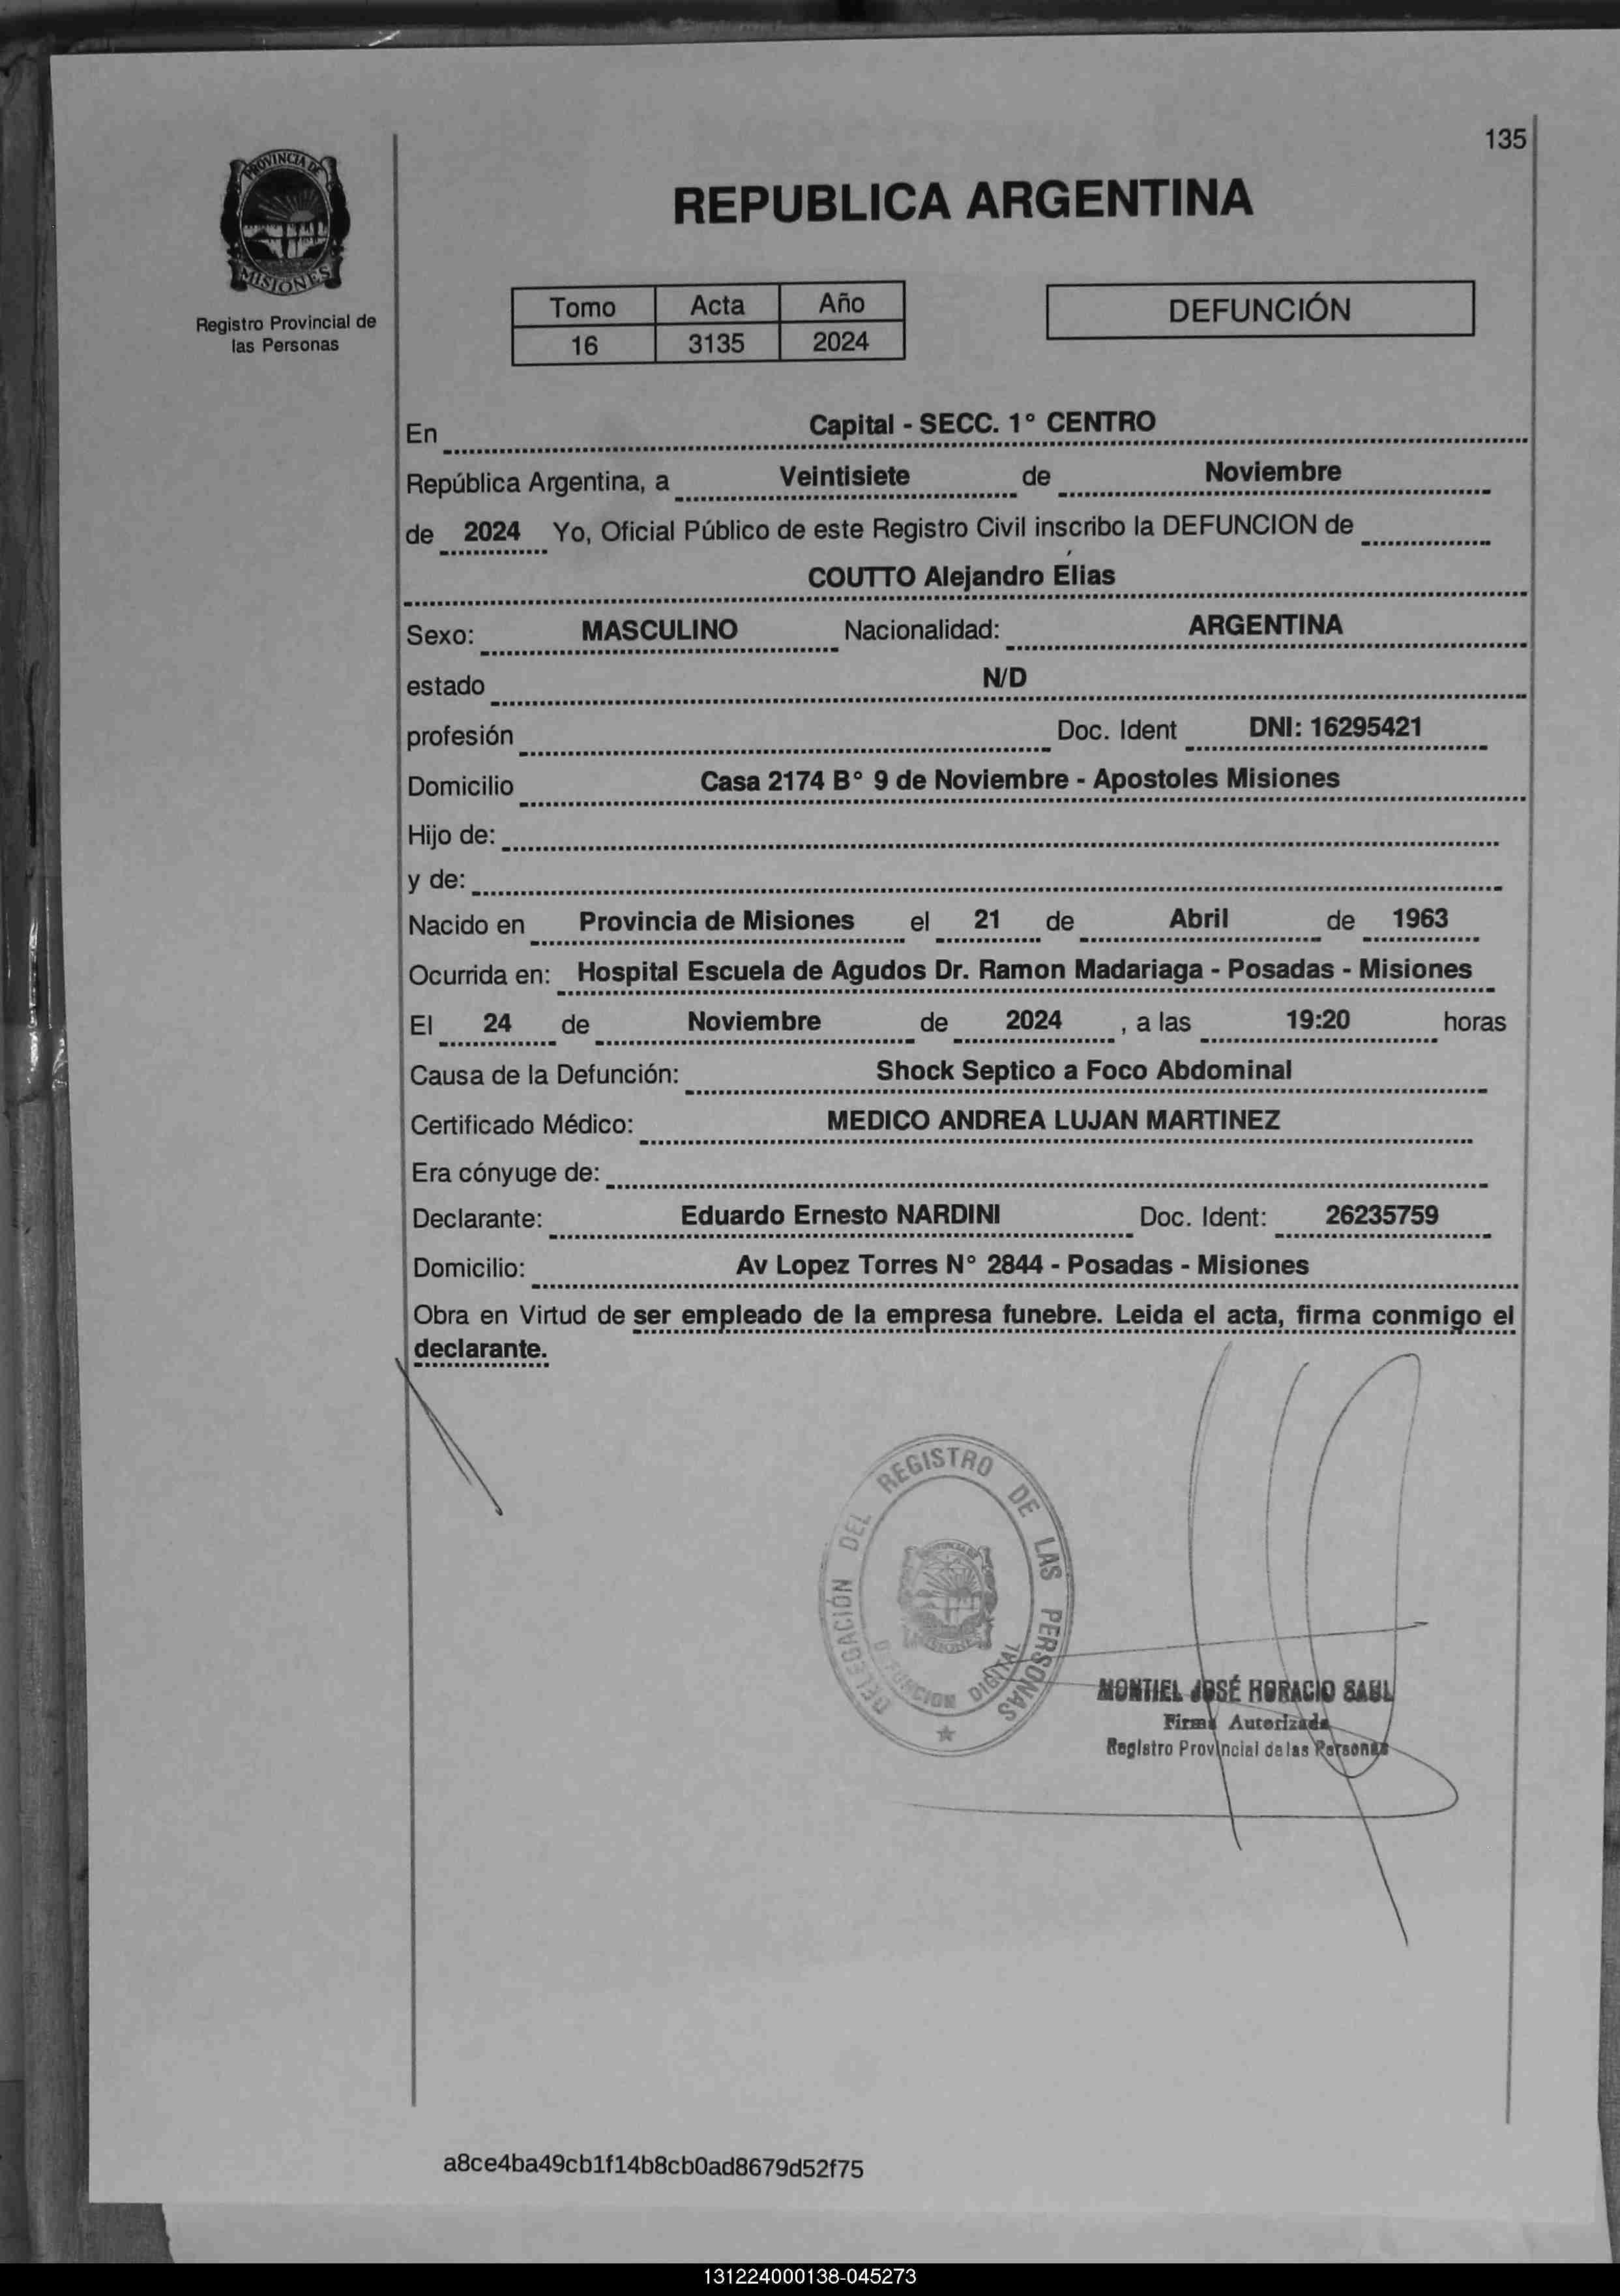 135
PROVINCIA DE
MISIONES
Registro Provincial de
las Personas
REPUBLICA ARGENTINA
Tomo Acta Año
16 3135 2024
DEFUNCIÓN
En Capital - SECC. 1° CENTRO
República Argentina, a Veintisiete de Noviembre
de 2024 Yo, Oficial Público de este Registro Civil inscribo la DEFUNCION de
COUTTO Alejandro Elias
Sexo: MASCULINO Nacionalidad: ARGENTINA
estado N/D
profesión Doc. Ident DNI: 16295421
Domicilio Casa 2174 B° 9 de Noviembre - Apostoles Misiones
Hijo de:
y de:
Nacido en Provincia de Misiones el 21 de Abril de 1963
Ocurrida en: Hospital Escuela de Agudos Dr. Ramon Madariaga - Posadas - Misiones
El 24 de Noviembre de 2024 , a las 19:20 horas
Causa de la Defunción: Shock Septico a Foco Abdominal
Certificado Médico: MEDICO ANDREA LUJAN MARTINEZ
Era cónyuge de:
Declarante: Eduardo Ernesto NARDINI Doc. Ident: 26235759
Domicilio: Av Lopez Torres N° 2844 - Posadas - Misiones
Obra en Virtud de ser empleado de la empresa funebre. Leida el acta, firma conmigo el
declarante.
DELEGACIÓN DEL REGISTRO DE LAS PERSONAS
DEFUNCION DIGITAL
MONTIEL JOSÉ HORACIO SAUL
Firma Autorizada
Registro Provincial de las Personas
a8ce4ba49cb1f14b8cb0ad8679d52f75
131224000138-045273